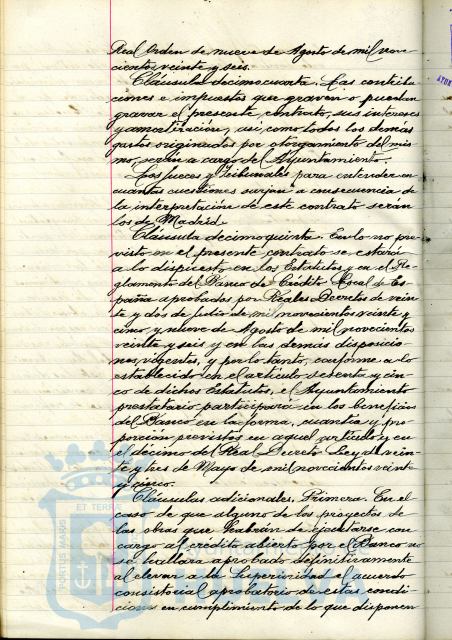 Real Orden de nueve de Agosto de mil nove-
cientos veinte y seis.
Cláusula decimocuarta. Las contribu-
ciones e impuestos que graven o puedan
gravar el presente contrato, sus intereses
y amortización, así como todos los demás
gastos originados por otorgamiento del mis-
mo, serán a cargo del Ayuntamiento.
Los Jueces y Tribunales para entender en
cuantas cuestiones surjan a consecuencia de
la interpretación de este contrato serán
los de Madrid.
Cláusula decimoquinta. En lo no pre-
visto en el presente contrato se estará
a lo dispuesto en los Estatutos y en el Re-
glamento del Banco de Crédito Local de Es-
paña aprobados por Reales Decretos de vein-
te y dos de Julio de mil novecientos veinte y
cinco y nueve de Agosto de mil novecientos
veinte y seis y en las demás disposicio-
nes vigentes, y por lo tanto, conforme a lo
establecido en el artículo sesenta y cin-
co de dichos Estatutos, el Ayuntamiento
prestatario participará en los beneficios
del Banco en la forma, cuantía y pro-
porción previstos en aquel artículo y en
el décimo del Real Decreto Ley de vein-
te y tres de Mayo de mil novecientos veinte
y cinco.
Cláusulas adicionales. Primera. En el
caso de que alguno de los proyectos de
las obras que habrán de ejecutarse con
cargo al crédito abierto por el Banco no
se hallara aprobado definitivamente
al elevar a la Superioridad el acuerdo
consistorial aprobatorio de estas condi-
ciones en cumplimiento de lo que disponen
ET TERRAE
PORTUS MARIS
Ayuntamiento de
HUELVA